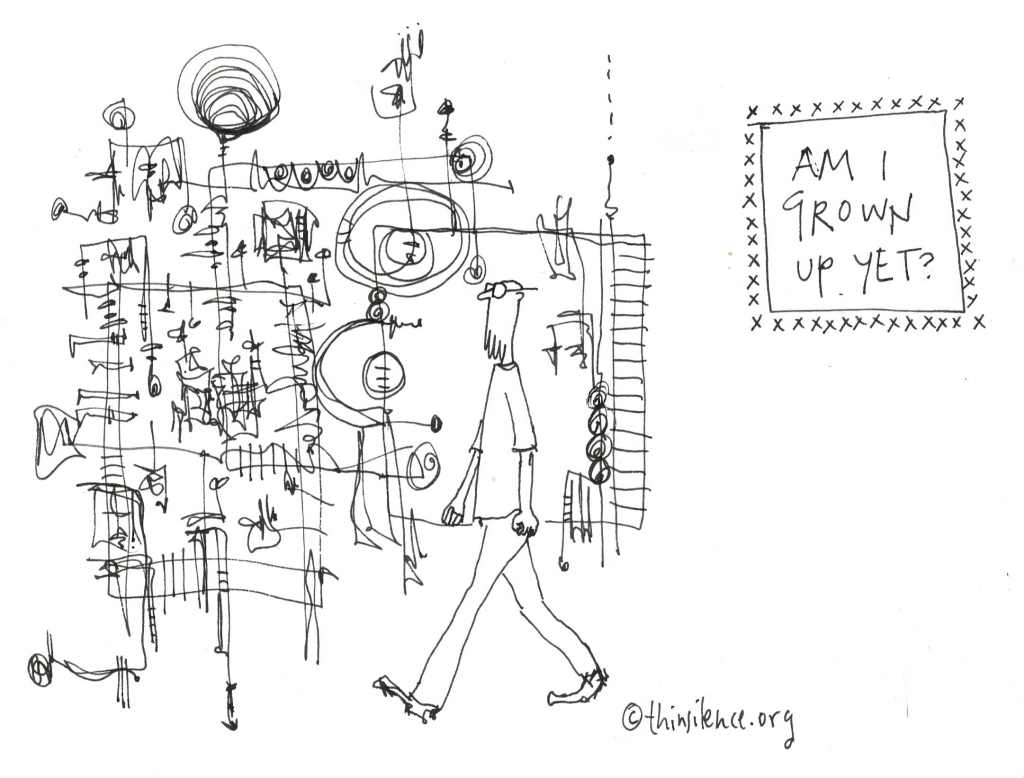 AM I
GROWN
UP YET?
©thinsilence.org